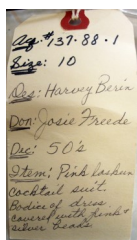 Acq.# 137.88.1
Size: 10
Des: Harvey Berin
Don: Josie Freede
Dec: 50's
Item: Pink
cocktail suit.
Bodice of dress
covered with pink &
silver beads.